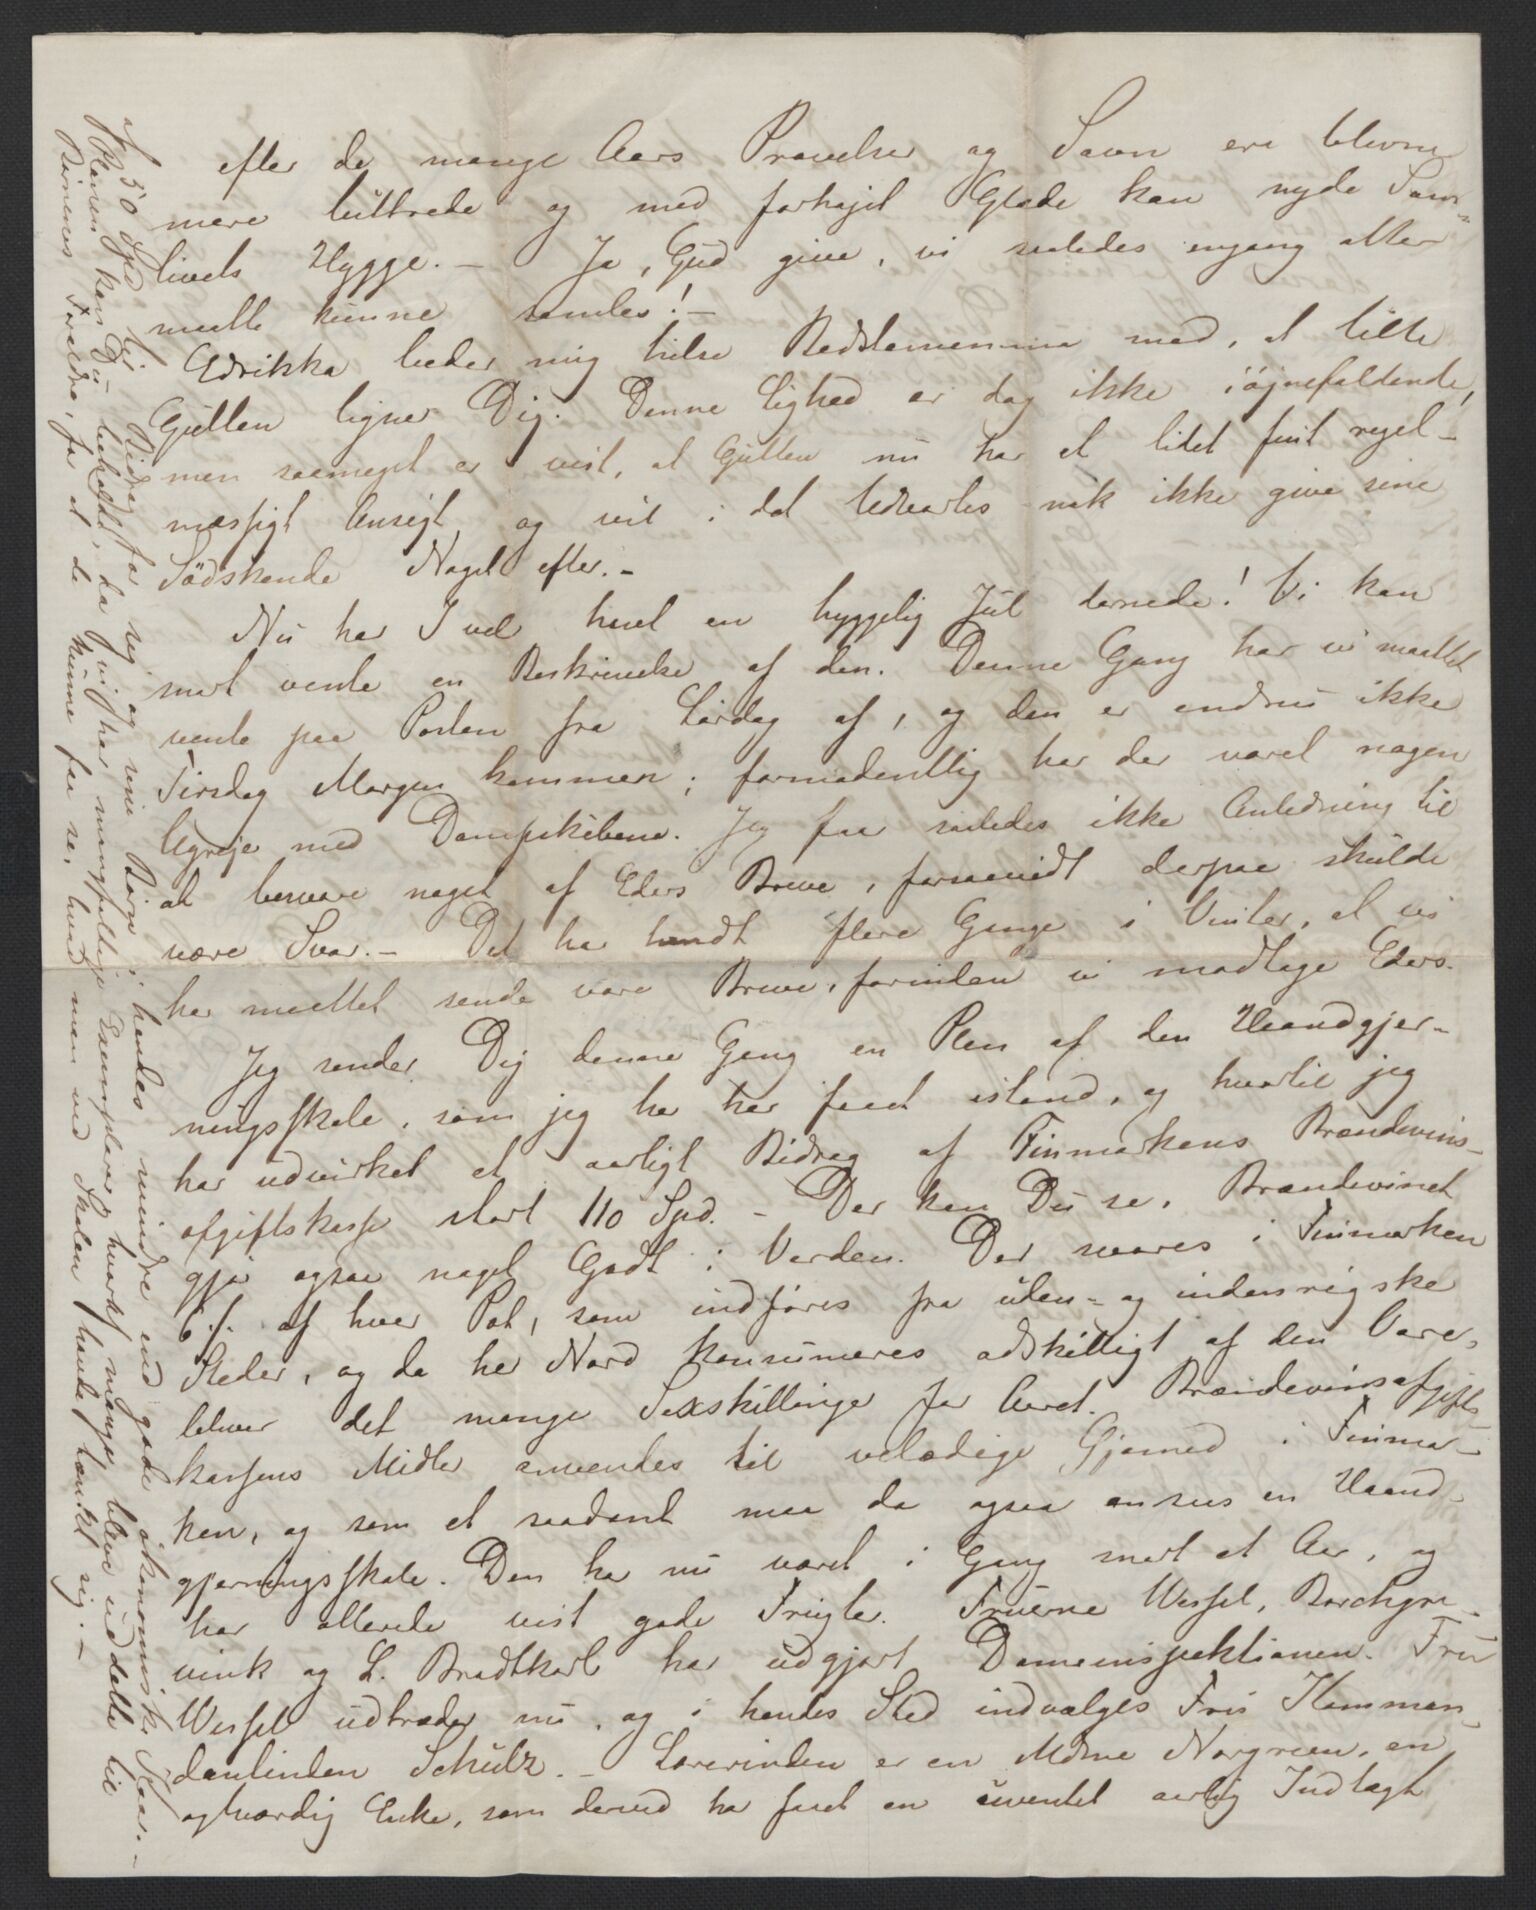 efter de mange Aars Prøvelser og Savn ere blevne
mere luttrede og med forhøjet Glæde kan nyde Sam-
livets Hygge. – Ja, Gud give, vi saaledes engang atter
maatte kunne samles! –
Edrikka beder mig hilse Bedstemamma med, at lille
Gutten ligner Dig. Denne Lighed er dog ikke iøjnefaldende,
men saameget er vist, at Gutten nu har et lidet fint regel-
mæssigt Ansigt, og vil i det Udvortes nok ikke give sine
Södskende Noget efter. –
Nu har I vel havt en hyggelig Jul dernede! Vi kan
snart vente en Beskrivelse af den. Denne Gang har vi maattet
vente paa Posten fra Lördag af, og den er endnu ikke
Tirsdag Morgen kommen; formodentlig har der været nogen
Ugreje med Dampskibene. Jeg faar saaledes ikke Anledning til
at besvare noget af Eders Breve, forsaavidt derpaa skulde
være Svar. – Det har hændt flere Gange i Vinter, at vi
har maattet sende vore Breve, forinden vi modtage Eders.
Jeg sender Dig denne Gang en Plan af den Haandgjer-
ningsskole, som jeg har her faaet istand, og hvortil jeg
har udvirket et aarligt Bidrag af Finmarkens Brændevins-
afgiftskasse stort 110 Spd. – Der kan Du se, Brændevinet
gjør ogsaa noget Godt i Verden. Der svares i Finmarken
6 ß. af hver Pot, som indføres fra uden- og indenrigske
Steder, og da her Nord konsumeres adskilligt af den Vare,
bliver det mange Sexskillinge for Aaret. Brændevinsafgifts-
kassens Midler anvendes til veldædige Gjemed i Finmar-
ken, og som et saadant maa da ogsaa ansees en Haand-
gjerningsskole. Den har nu været i Gang snart et Aar, og
har allerede vist gode Frugter. Fruerne Wessel, Borchgre-
vink og L. Brodtkorb har udgjort Dameinspektionen. Fru
Wessel udtræder nu, og i hendes Sted indvælges Fru Kommen-
dantinden Schulz. – Lærerinden er en Mdme Norgreen, en
agtværdig Enke, som derved har faaet en uventet aarlig Indtægt
af 50 Spd. til Bidrag for sig og sine Börn i hendes mindre end gode økonomiske Kaar. –
Planen kan Du beholde, da vi har mangfoldige Exemplarer, hvoraf mange bleve uddelte til
Börnenes Forældre, for at de kunne faa se, hvad man ved Skolen havde tænkt sig. –